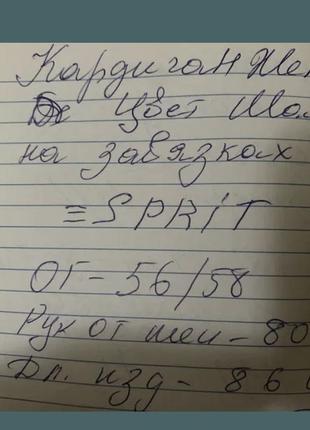 Кардиган Же
Цвет Мол
на завязках
ΞSPRiT
ОГ-56/58
Рук от шеи-80
Дл. изд-86